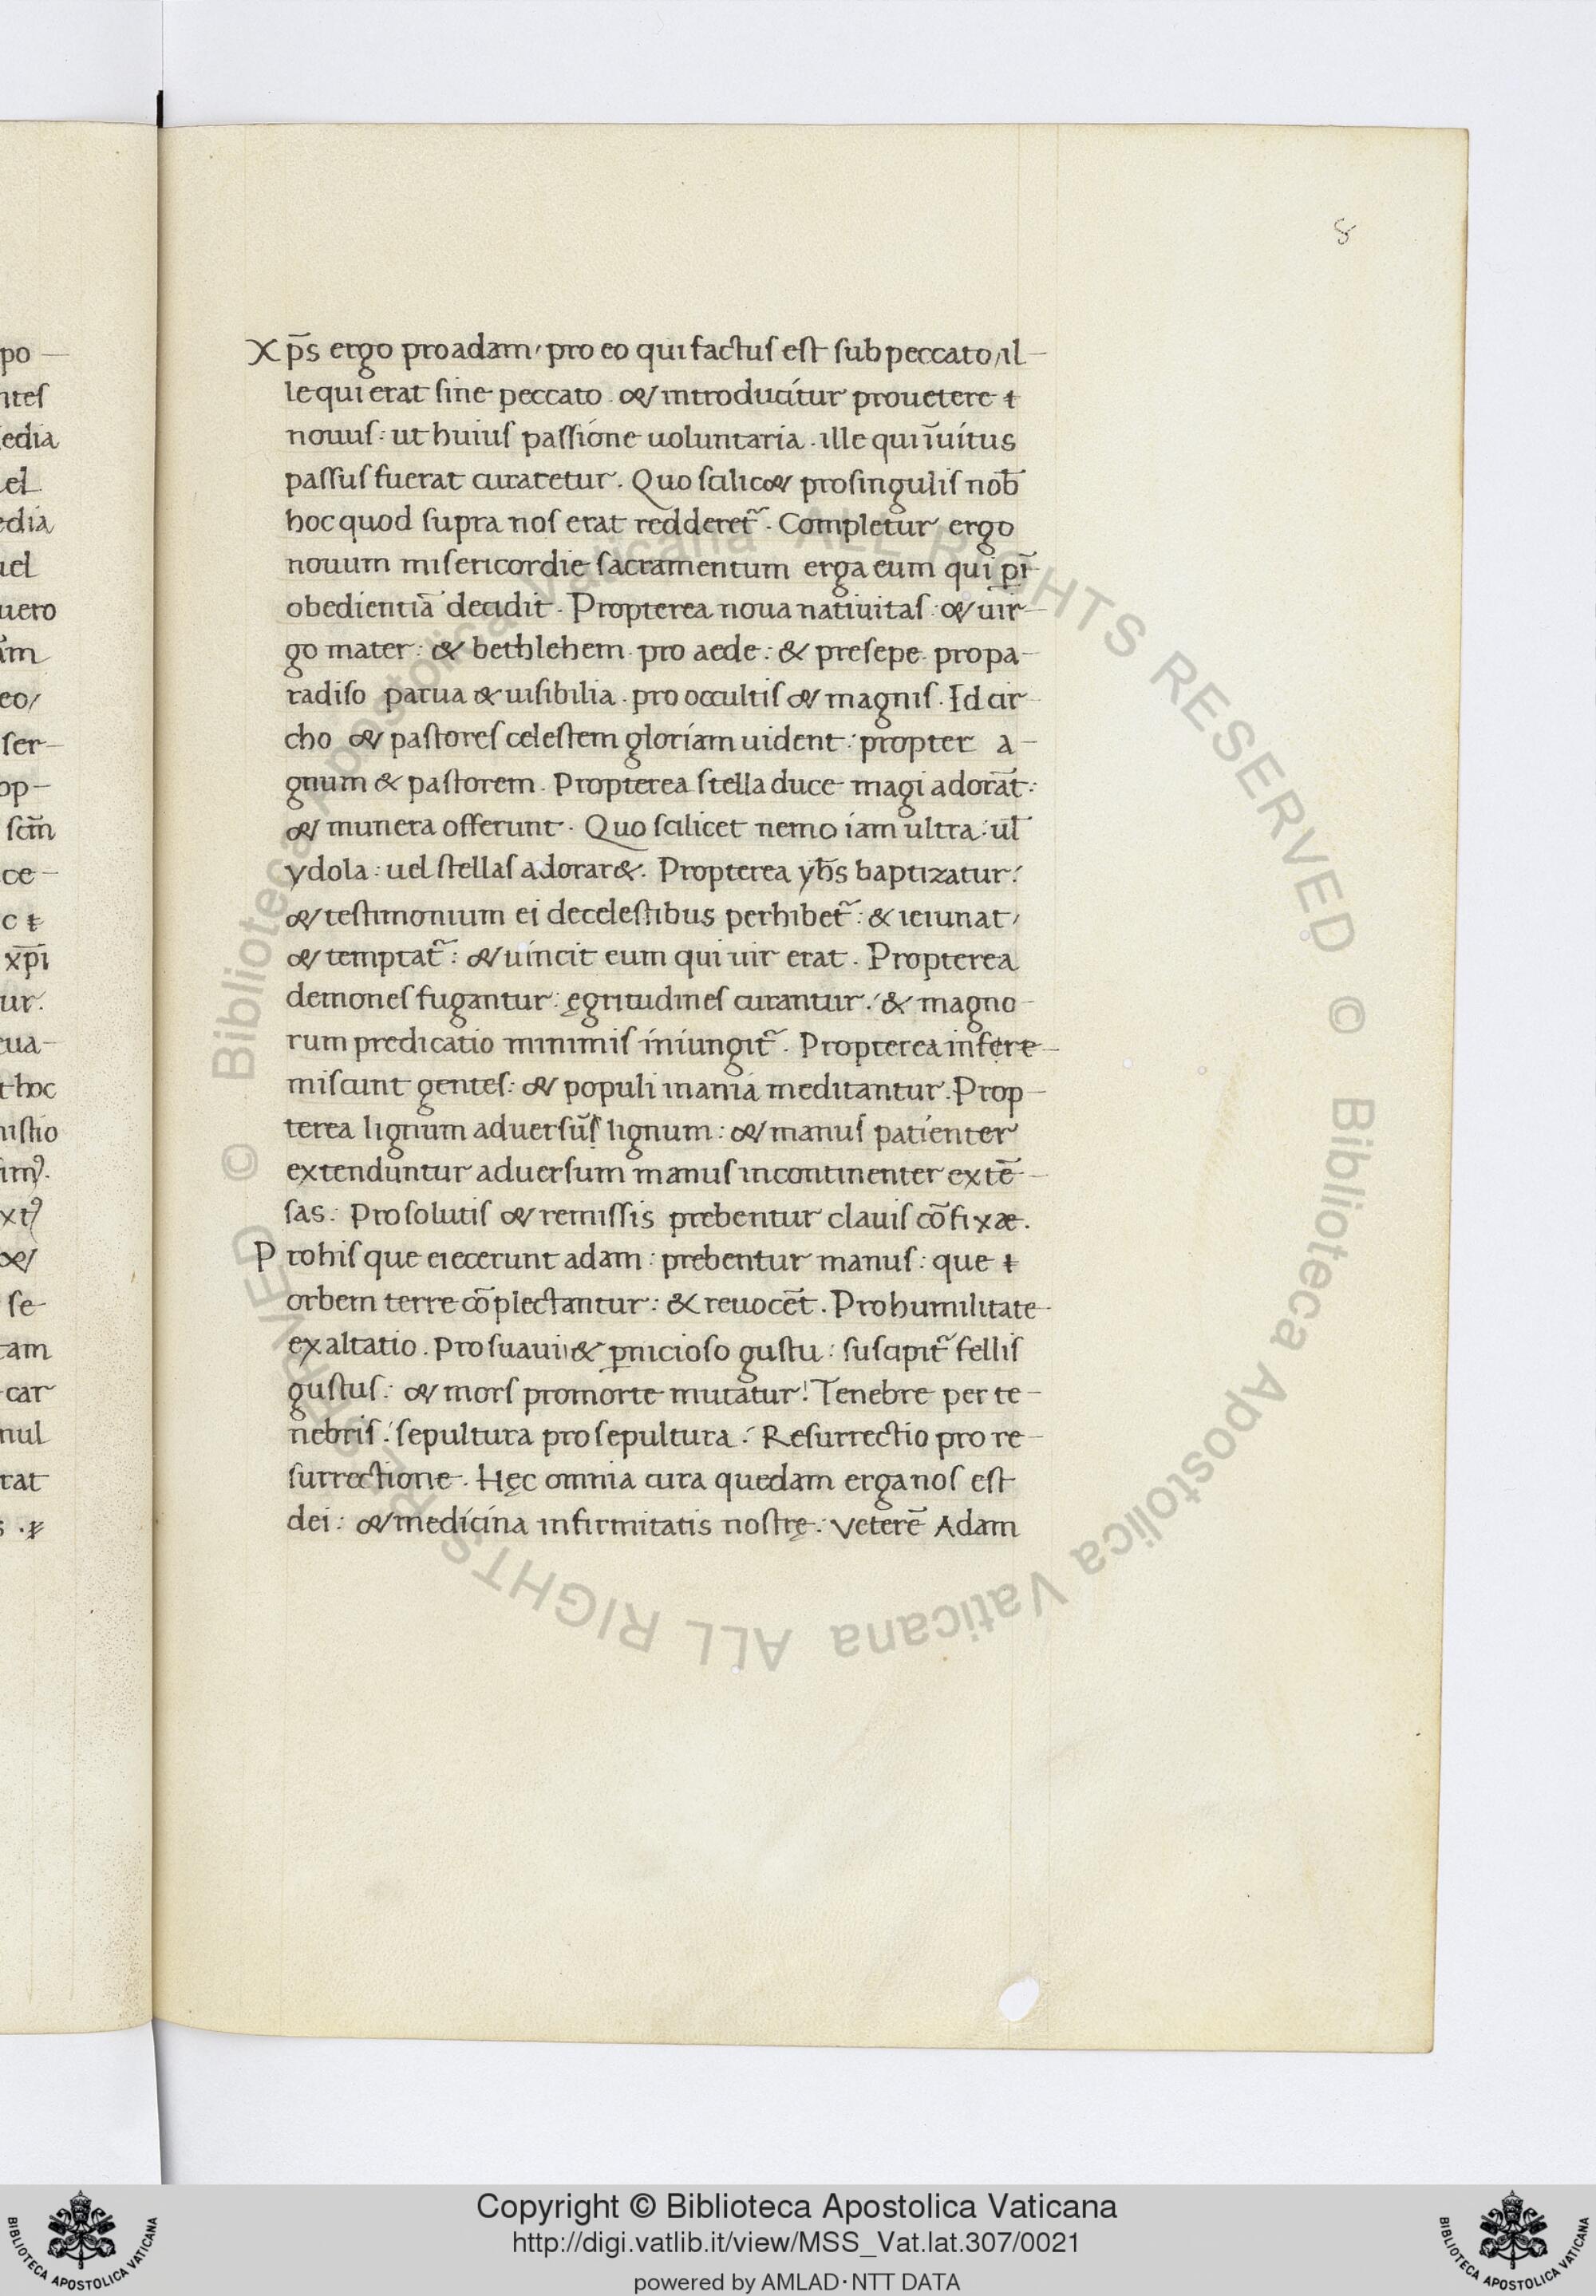 po
ntes
edia
el
edia
uel
uero
am
eo/
ser-
op-
scm̄
ce-
c
xp̄i
ur.
cua-
t hoc
nistio
xt
&
se-
tam
car
mul
rat
8
Xp̄s ergo pro adam, pro eo qui factus est sub peccato, il-
le qui erat sine peccato. & introducitur pro uetere
nouus: ut huius passione uoluntaria. ille qui īuitus
passus fuerat curaretur. Quo scilic& pro singulis nob̄
hoc quod supra nos erat reddereť. Completur ergo
nouum misericordie sacramentum erga eum qui p̱ ī-
obedientiā decidit. Propterea noua natiuitas: & uir-
go mater: & bethlehem pro aede: & presepe pro pa-
radiso parua & uisibilia. pro occultis & magnis. Id cir-
cho & pastores celestem gloriam uident: propter a-
gnum & pastorem. Propterea stella duce magi adorāt:
& munera offerunt. Quo scilicet nemo iam ultra: ul̄
ydola: uel stellas adorar&. Propterea yh̄s baptizatur:
& testimonium ei de celestibus perhibeť: & ieiunat,
& temptať: & uincit eum qui uir erat. Propterea
demones fugantur: ęgritudines curantur: & magno-
rum predicatio minimis iniungiť. Propterea infere-
miscunt gentes: & populi inania meditantur. Prop-
terea lignum aduersūs lignum: & manus patienter
extenduntur aduersum manus incontinenter extē-
sas: Pro solutis & remissis prebentur clauis cōfixæ.
Pro his que eiecerunt adam: prebentur manus: que
orbem terre cōplectantur: & reuocēt. Pro humilitate
exaltatio. Pro suaui & p̱nicioso gustu: suscipiť fellis
gustus: & mors pro morte mutatur! Tenebre per te-
nebris: sepultura pro sepultura: Resurrectio pro re-
surrectione. Hęc omnia cura quedam erga nos est
dei: & medicina infirmitatis nostrę: Veterē Adam
© Biblioteca Apostolica Vaticana ALL RIGHTS RESERVED © Biblioteca Apostolica Vaticana ALL RIGHTS RESERVED
Copyright © Biblioteca Apostolica Vaticana
http://digi.vatlib.it/view/MSS_Vat.lat.307/0021
powered by AMLAD·NTT DATA
BIBLIOTECA APOSTOLICA VATICANA
BIBLIOTECA APOSTOLICA VATICANA